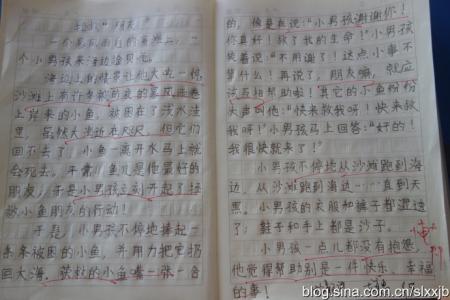 一个暴风雨后的
个小男孩来海边捡贝壳。
海边上的情景让他大吃一惊，
沙滩上有许多被
上岸来的小鱼。被困在了浅水洼
里，虽然大海近在咫尺，但它们
回不去了！小鱼一离开水马上就
会死去。平常，鱼儿是他最好的
朋友，于是小男孩立刻开起了拯
救小鱼朋友的行动！
于是，小男孩不停地捧起一
条条被困的小鱼，并用力把它扔
回大海。获救的小鱼嘴一张一合
的，像是在说：“小男孩谢谢你！
你真好！救了我的生命！”小男孩
笑着说：“不用谢了！这点小事不
算什么！再说了，朋友嘛，就应
该互相帮助啦！其它的小鱼纷纷
大声叫他：“快来救我呀！快来救
我呀！”小男孩马上回答：“好的！
我很快就来了！”
小男孩不停地从沙滩跑到海
边，从沙滩跑到海边……直到天
黑。小男孩的衣服和裤子都湿透
了；鞋子和手上都是沙子。
小男孩一点儿都没有抱怨，
他觉得帮助别是一件快乐、幸福
的事！
blog.sina.com.cn/slxxjb